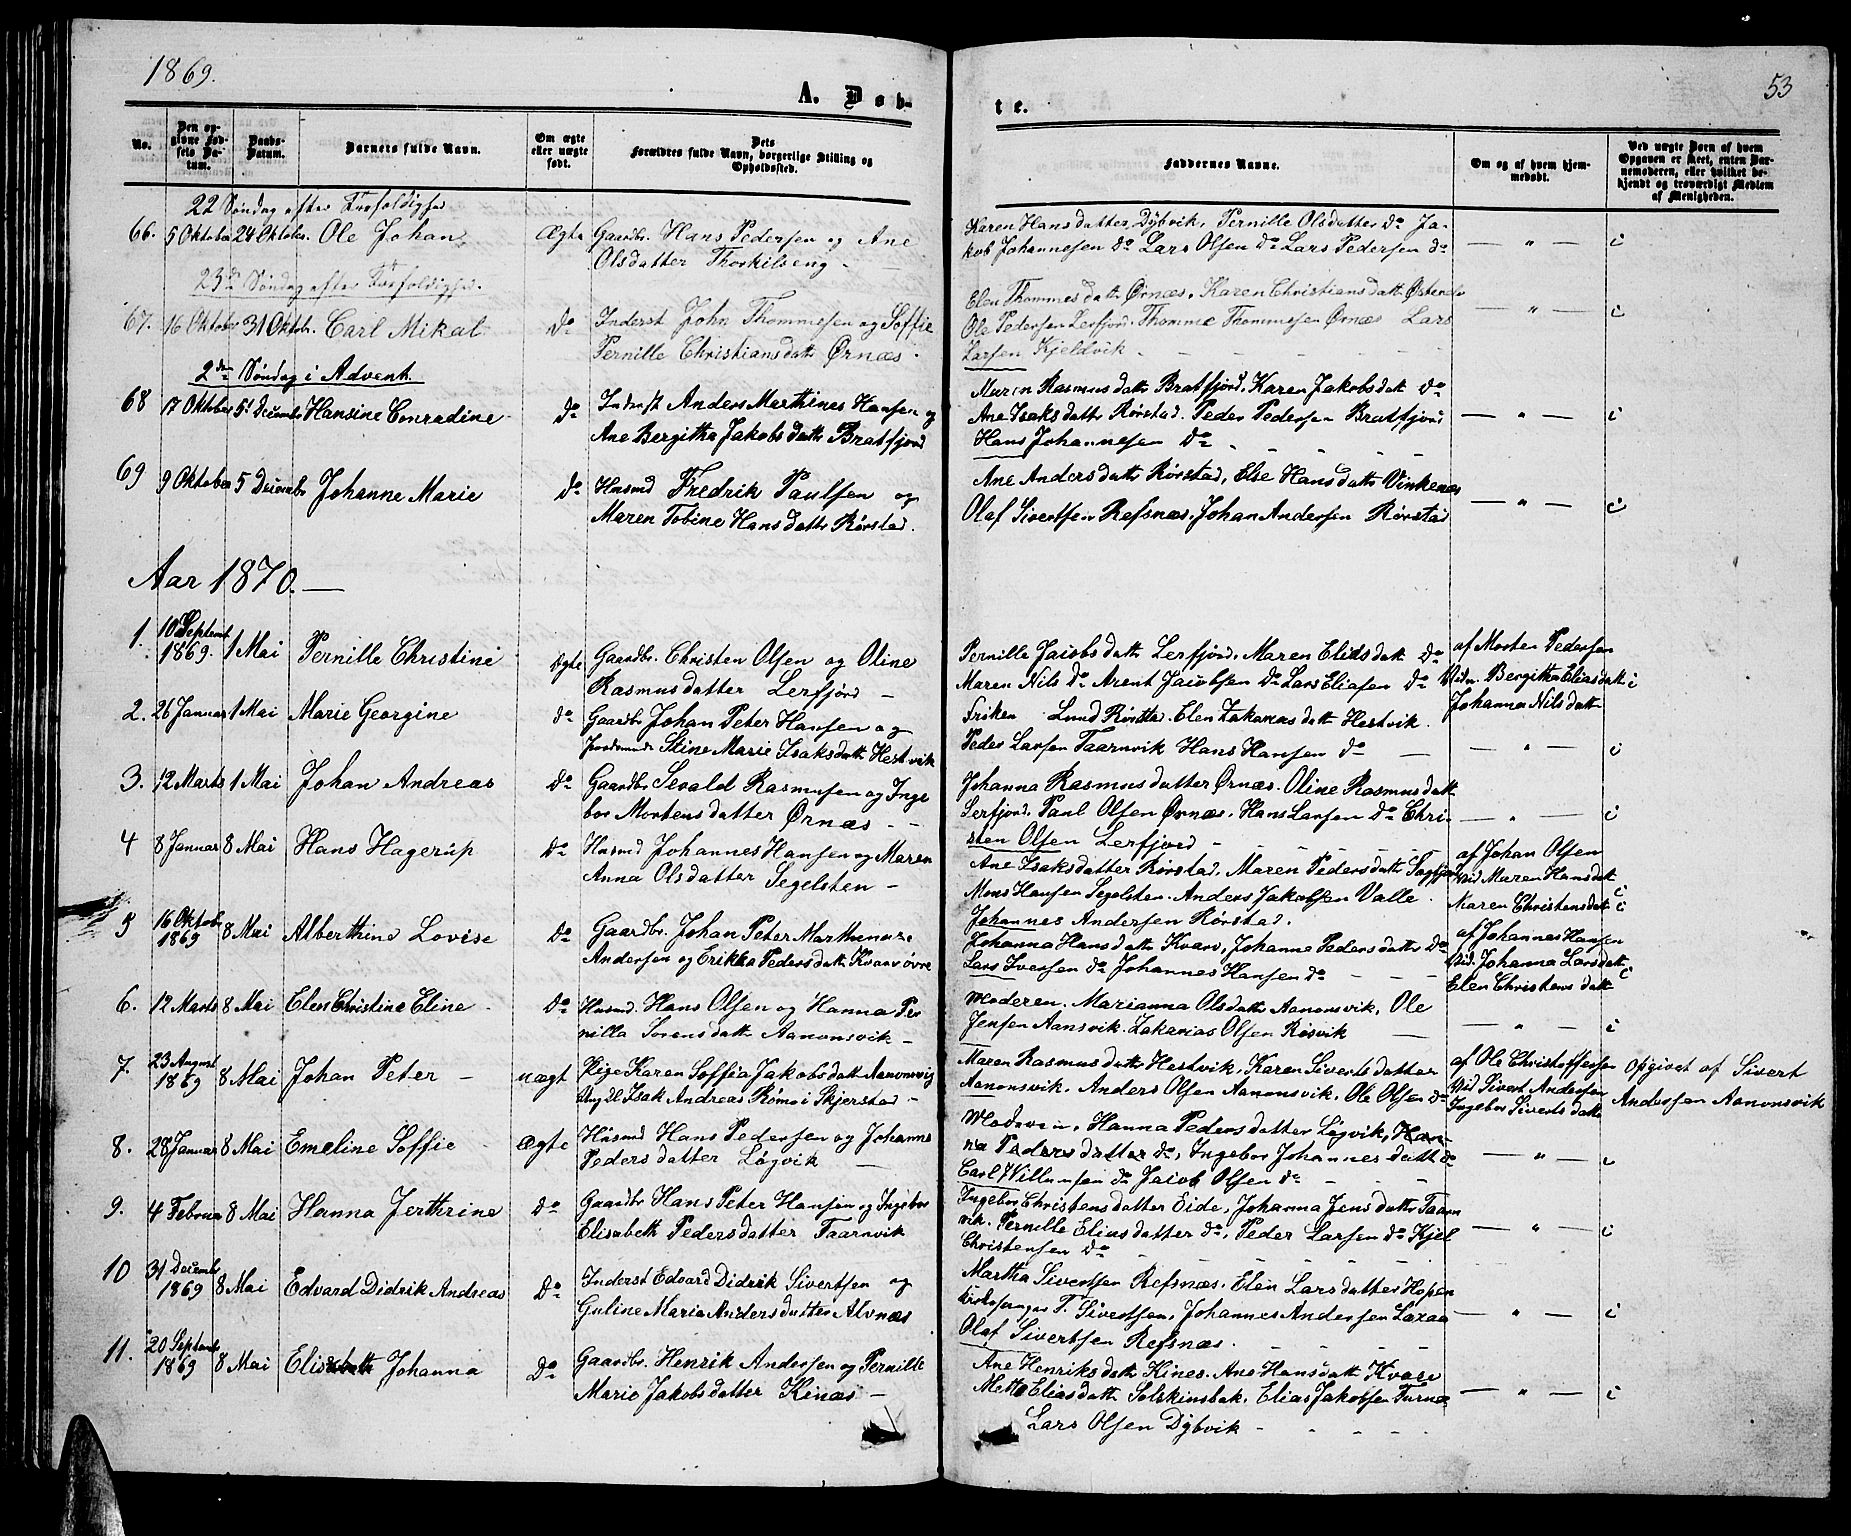 1869.
53
A. Døb-
te.
No.
Den op-
givne Fød-
sels Da-
tum.
Daabs-
Datum.
Barnets fulde Navn.
Om ægte
eller uægte
født.
Dets
Forældres fulde Navn, borgerlige Stilling og
Opholdssted.
Faddernes Navne.
Om og af hvem hjem-
medøbt.
Ved uægte Børn af hvem
Opgaven er skeet, enten Bar-
nemoderen, eller hvilket be-
kjendt og troværdigt Medlem
af Menigheden.
22 Søndag efter Trefoldighed
66. 5 Oktober 24 Oktober Ole Johan Ægte Gaardbr. Hans Pedersen og Ane
Olsdatter Thorkilseng -
Karen Hansdatter Dybvik, Pernille Olsdatter Do Ja-
kob Johannesen Do Lars Olsen Do Lars Pedersen Do
— " — i
23de Søndag efter Trefoldighed.
67. 16 Oktober 31 Oktobr. Carl Mikal Do Inderst John Thommesen og Soffie
Pernille Christiansdatt Ørnæs -
Elen Thommesdatt Ørnæs, Karen Christiansdatt
Ole Pedersen Lerfjord. Thomme Thommesen Ørnæs Lars
Larsen Kjeldvik - - - -
— " — i
2den Søndag i Advent.
68 17 Oktober 5t Decembr Hansine Conradine Do Inderst Anders Marthines Hansen og
Ane Bergitha Jakobsdattr Bratfjord
Maren Rasmusdattr Bratfjord, Karen Jakobsdatt Do
Ane Isaksdattr Rørstad. Peder Pedersen Bratfjord
Hans Johannesen Do - - - -
— " — i
69 9 Oktober 5 Decembr Johanne Marie Do Husmd Fredrik Paulsen og
Maren Tobine Hansdattr Rørstad.
Ane Andersdattr Rørstad, Else Hansdattr Vinkenæs
Olaf Sivertsen Refsnæs, Johan Andersen Rørstad
— " — i
Aar 1870. —
1. 10 Septemt
1869. 1 Mai Pernille Christine ægte Gaardbr. Christen Olsen og Oline
Rasmusdatter Lerfjord -
Pernille Jacobsdattr Lerfjord, Maren Eliasdatt Do
Maren Nils Do Arent Jacobsen Do Lars Eliasen Do
af Morten Pedersen
Vidn. Bergitha Eliasdatt i
Johanna Nilsdatt
2. 26 Januar 1 Mai Marie Georgine Do Gaardbr Johan Peter Hansen og
Stine Marie Isaksdattr Hestvik
Lund Elen Zakariasdatt Hestvik.
Peder Larsen Taarnvik Hans Hansen Do —
— " — i
3. 12 Marts 1 Mai Johan Andreas Do Gaardbr Sevald Rasmusen og Inge
bor Mortensdatter Ørnæs - -
Johanna Rasmusdatter Ørnæs. Oline Rasmusdatt
Lerfjord. Paul Olsen Ørnæs. Hans Larsen Do Chri-
sten Olsen Lerfjord - - - -
— " — i
4 8 Januar 8 Mai Hans Hagerup Do Husmd Johannes Hansen og Maren
Anna Olsdatter Segelsten -
Ane Isaksdatter Rørstad, Maren Pedersdattr Sagfjord
Mons Hansen Segelsten. Anders Jakobsen Valle.
Johannes Andersen Rørstad.
af Johan Olsen
Vid Maren Hansdatt
Karen Christensdatt i
5 16 Oktob
1869 8 Mai Alberthine Lovise Do Gaardbr. Johan Peter
Andersen og Erikka Pedersdatt Kvarv øvre
Johanna Hansdattr Kvarv, Johanne Pedersdatter Do
Lars Iversen Do Johannes Hansen Do - - -
af Johannes Hansen
Vid. Johanna Larsdatt i
Elen Christensdatt
6. 12 Marts 8 Mai Elen Christine Eline Do Husmd. Hans Olsen og Hanna Per
nilla Sørensdattr Aanonsvik -
Moderen. Marianna Olsdattr Aanonsvik, Ole
Jensen Aansvik. Zakarias Olsen Røsvik —
— " — i
7. 23 August
1869 8 Mai Johan Peter - uægt Pige Karen Soffia Jakobsdatt Aanonsvig
Ungkl Isak Andreas Romo i Skjerstad -
Maren Rasmusdattr Hestvik, Karen Sivertsdatter
Aanonsvik. Anders Olsen Aanonsvik, Ole Olsen Do
af Ole Christoffersen
Vid Sivert Andersen
Ingebor Sivertsdatt
Opgivet af Sivert
Andersen Aanonsvik
8. 28 Januar 8 Mai Emeline Soffie Ægte Husmd Hans Pedersen og Johanna
Pedersdatter Løgvik —
Moderen, Hanna Pedersdatter Løgvik, Han-
na Pedersdatter do, Ingebor Johannesdatt do
Carl Willumsen do Jacob Olsen do - - -
— " — i
9. 4 Februar 8 Mai Hanna Jerthrine Do Gaardbr Hans Peter Hansen og Ingebor
Elisabeth Pedersdatter Taarnvik
Ingebor Christensdatter Eide, Johanna Jensdattr Taarn
vik. Pernille Eliasdatter do, Peder Larsen do Kjel
Christensen do - - -
— " — i
10 31 Decemb
1869 8 Mai Edvard Didrik Andreas Do Inderst Edvard Didrik Sivertsen og
Guline Maria Andersdatter Alvnæs
Martha Sivertsen Refsnæs, Elen Larsdatter Hopen
Kirkesanger T. Sivertsen, Johannes Andersen Laxaa
Olaf Sivertsen Refsnæs. - - -
— " — i
11. 20 Septemb
1869 8 Mai Elisabeth Johanna Do Gaardbr. Henrik Andersen og Pernille
Marie Jakobsdatter Kinæs -
Ane Henriksdattr Kines. Ane Hansdattr Kvarv
Metta Eliasdattr Solskinsbak. Elias Jakobsen Furnæs
Lars Olsen Dybvik - - - -
— " — i